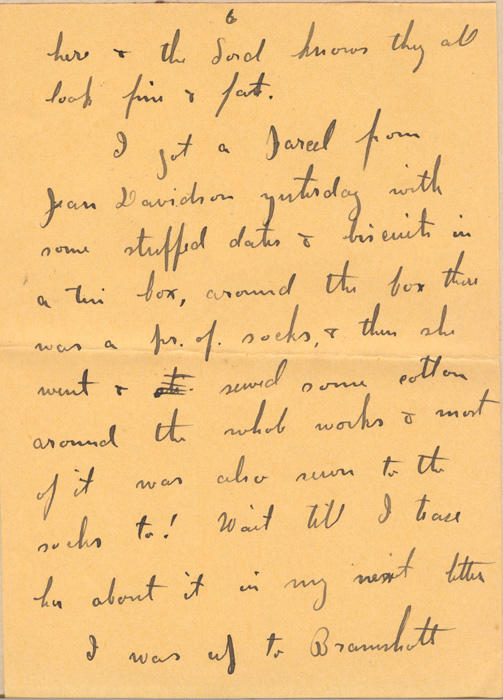 6
here & the Lord knows they all
look fine & fat.
I got a parcel from
Jean Davidson yesterday with
some stuffed dates & biscuits in
a tin box, around the box there
was a pr. of. socks, & then she
went & sewed some cotton
around the whole works & most
of it was also sewn to the
socks to! Wait till I tease
her about it in my next letter
I was up to Bramshott